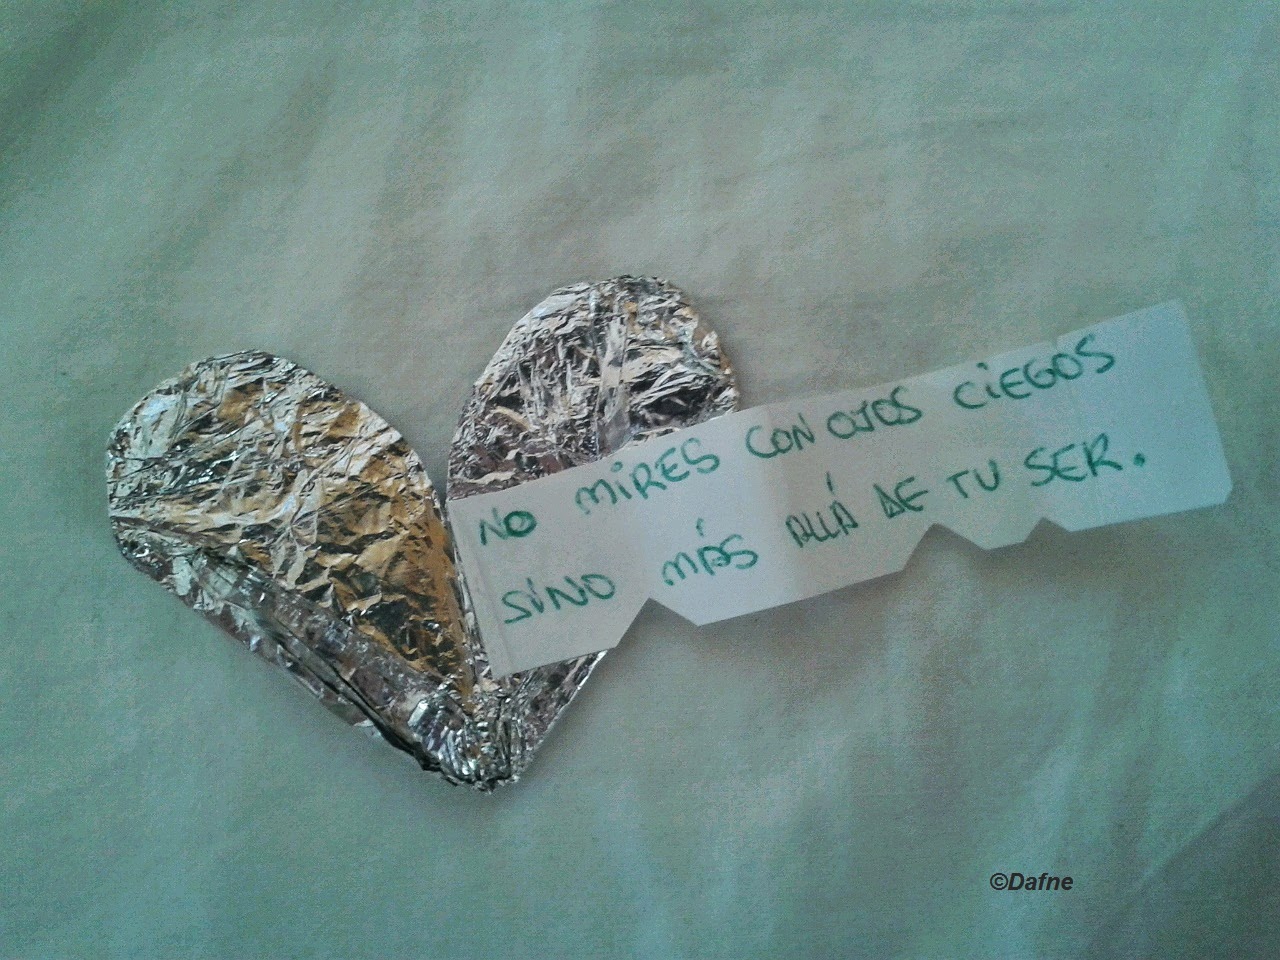 NO MIRES CON OJOS CIEGOS
SINO MÁS ALLÁ DE TU SER.
©Dafne